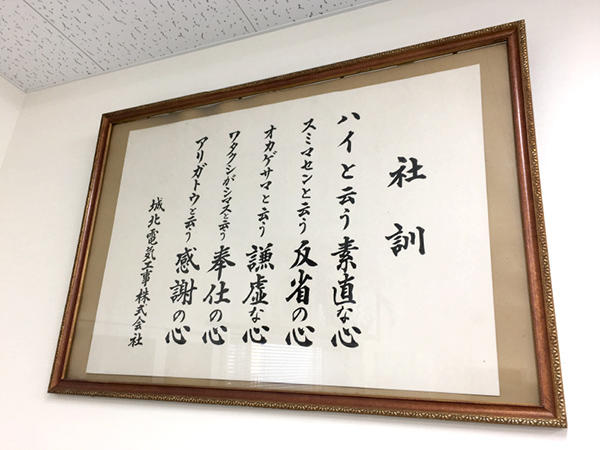 社訓
ハイと云う素直な心
スミマセンと云う反省の心
オカゲサマと云う謙虚な心
ワタクシがシマスと云う奉仕の心
アリガトウと云う感謝の心
城北電気工事株式会社